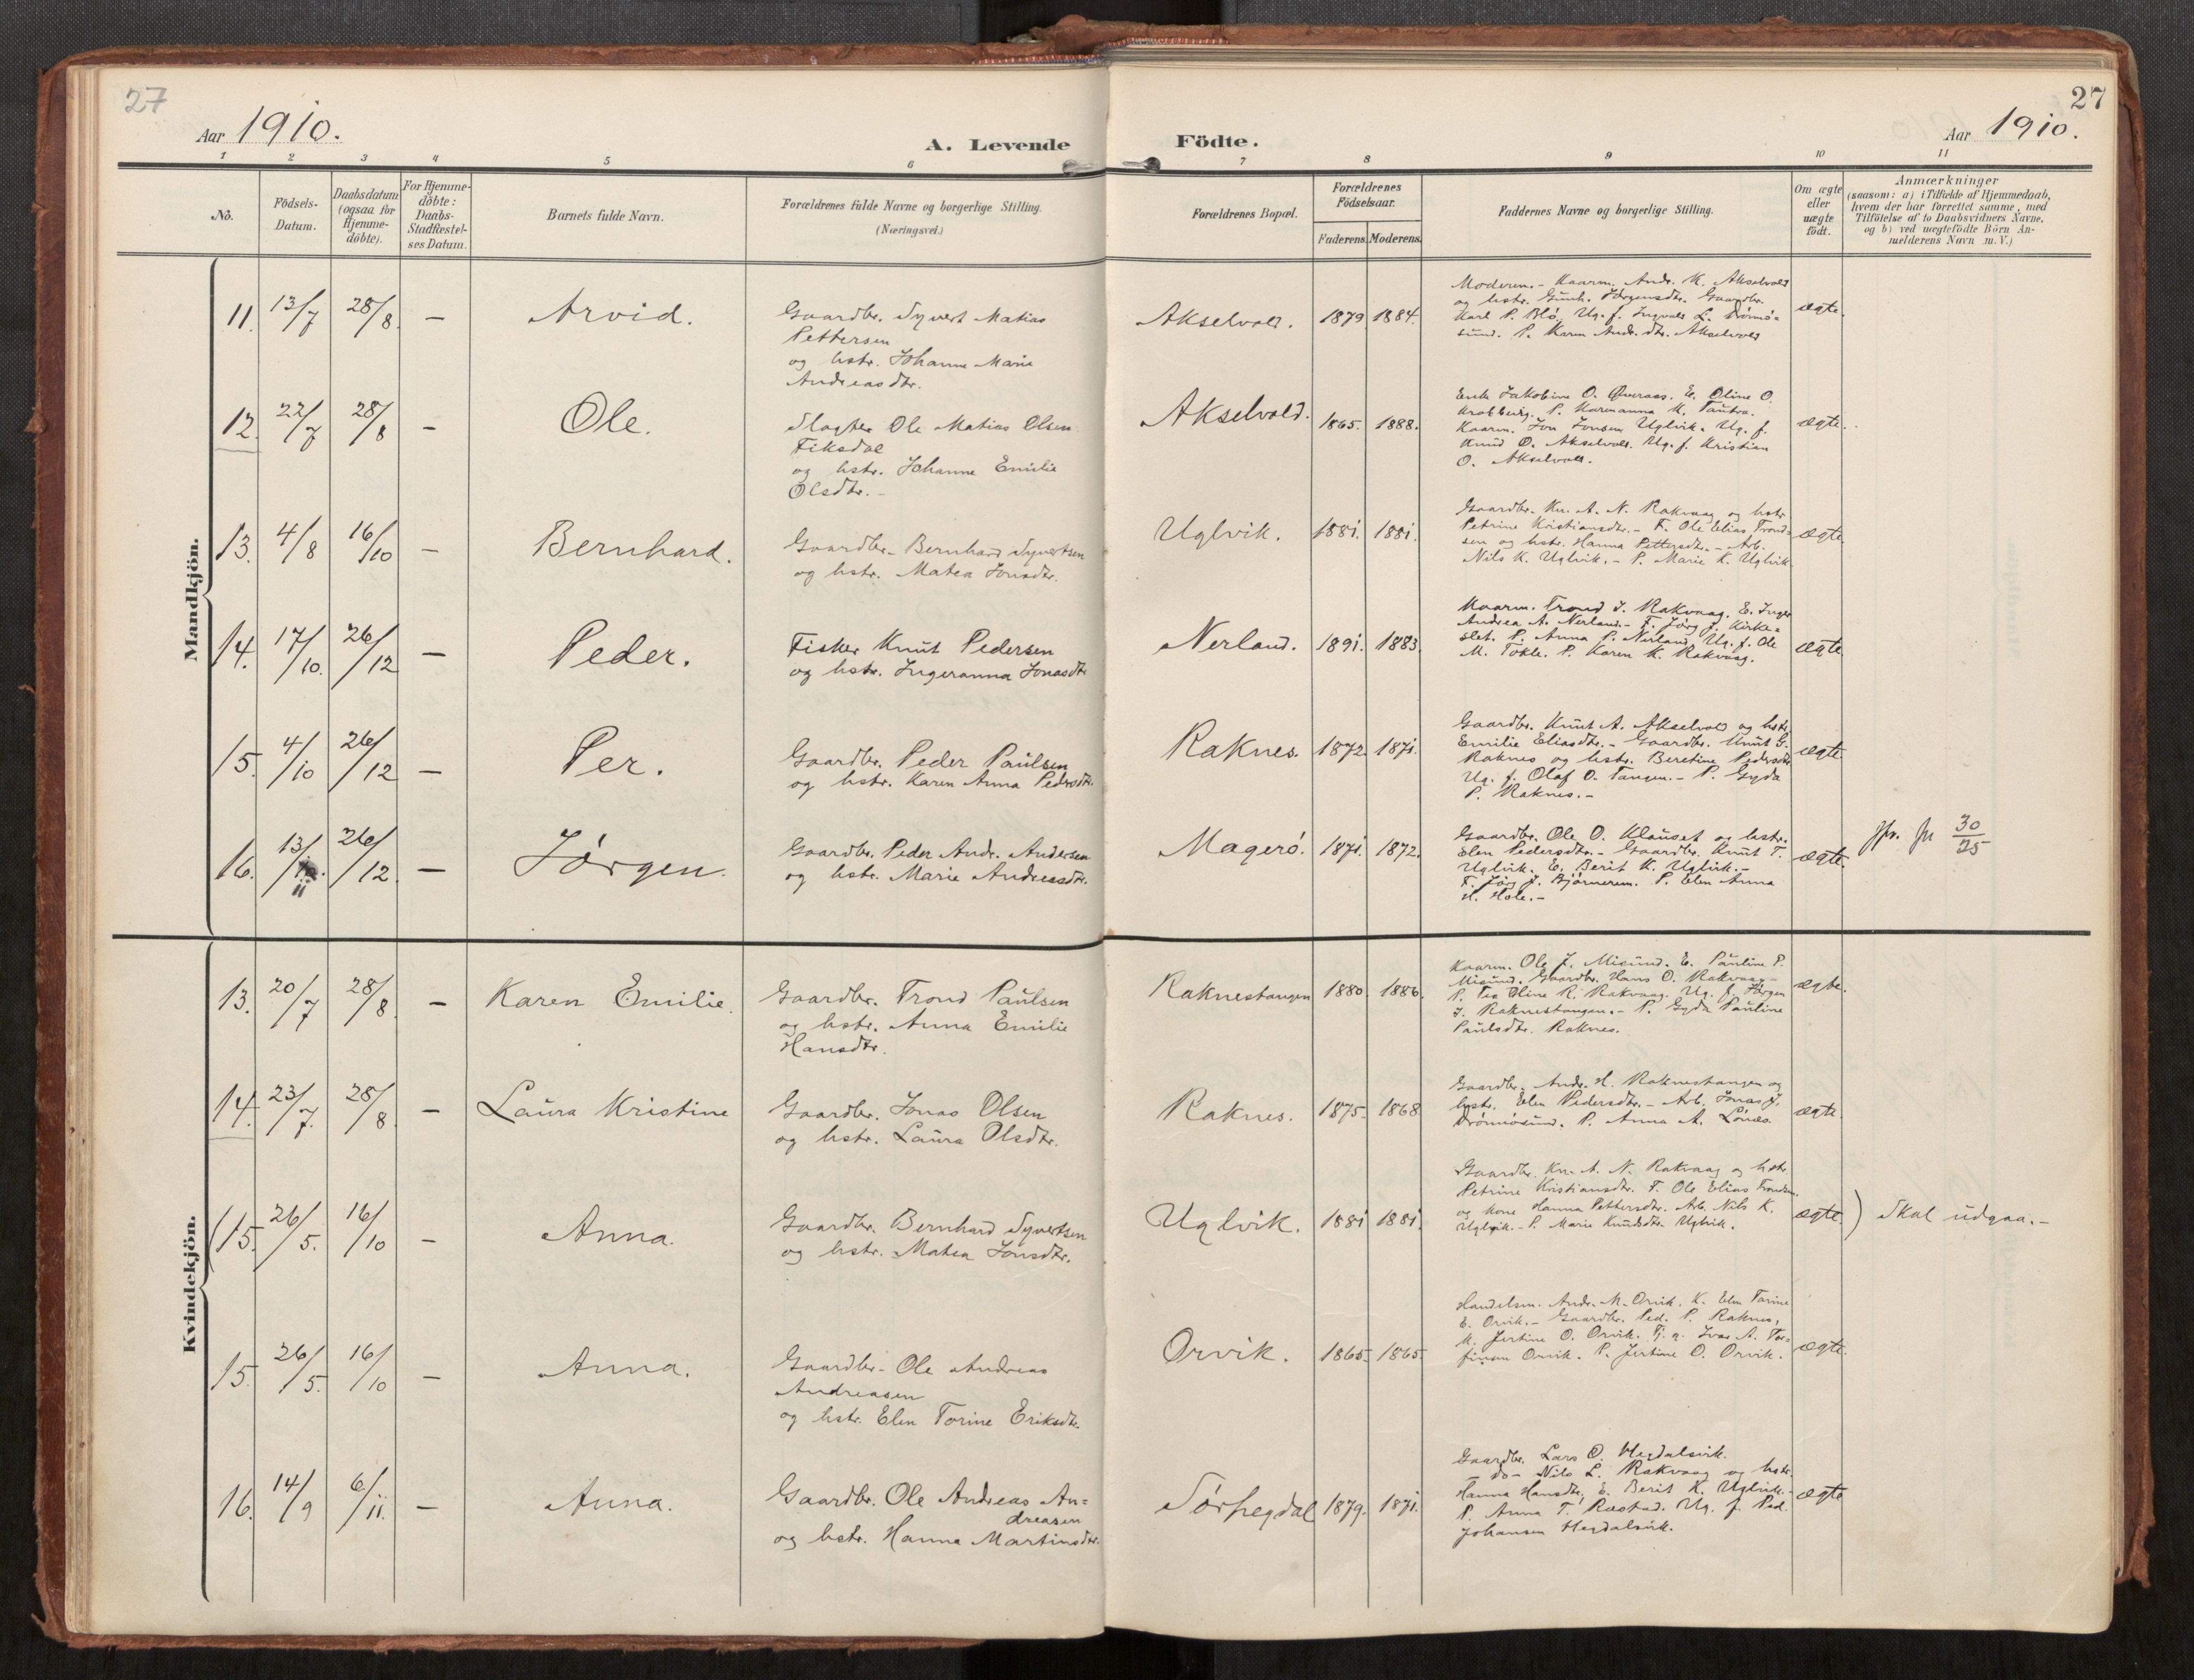 27
27
Aar 1910.
A. Levende Födte.
Aar 1910.
1 2 3 4 5 6 7 8 9 10 11
No.
Födsels-
Datum.
Daabsdatum
(ogsaa for
Hjemme-
döbte).
For Hjemme-
döbte:
Daabs-
Stadfæstel-
ses Datum.
Barnets fulde Navn.
Forældrenes fulde Navne og borgerlige Stilling.
(Næringsvei.)
Forældrenes Bopæl.
Forældrenes
Födselsaar.
Faderens. Moderens.
Faddernes Navne og borgerlige Stilling.
Om ægte
eller
uægte
födt.
Anmærkninger
(saasom: a) i Tilfælde af Hjemmedaab,
hvem der har forrettet samme, med
Tilföielse af to Daabsvidners Navne,
og b) ved uægtefödte Börn An-
melderens Navn m. V.)
Mandkjön.
11. 13/7 28/8 — Arvid.
Gaardbr. Syvert Matias
Pettersen
og hstr. Johanne Marie
Andreasdtr.
Akselvold. 1879 1884.
Moderen. - Kaarm. Andr. K. Akselvold
og hstr. Gunh. Jörgensdtr. Gaardbr.
Karl P. Blö, Ug. f. Ingvald L. Drömö=
sund. P. Karen Andr.dtr. Akselvold
ægte.
12. 22/7 28/8 — Ole.
Slagter Ole Matias Olsen
Fiksdal
og hstr. Johanne Emilie
Olsdtr. -
Akselvold. 1865. 1888.
Enke Jakobine O. Øveraas. E. Oline O.
Krabberg. P. Karenanna K. Tautra.
Kaarm. Jon Jonsen Uglvik. Ug. f.
Knud O. Akselvold. Ug. f. Kristian
O. Akselvold.
ægte.
13. 4/8 16/10 — Bernhard.
Gaardbr. Bernhard Syvertsen
og hstr. Matea Jonsdtr.
Uglvik. 1881. 1881.
Gaardbr. Kn. A. N. Rakvaag og hstr.
Petrine Kristiansdtr. - F. Ole Elias Trond=
sen og hstr. Hanna Pettersdtr. - Arb.
Nils K. Uglvik. - P. Marie K. Uglvik.
ægte.
14. 17/10. 26/12 — Peder.
Fisker Knut Pedersen
og hstr. Ingeranna Jonasdtr
Nerland. 1891. 1883.
Kaarm. Trond J. Rakvaag. E. Inger
Andrea A. Nerland. - F. Jörg J. Kirke=
slet. P. Anna P. Nerland, Ug. f. Ole
M. Tokle. P. Karen K. Rakvaag.
ægte.
15. 4/10 26/12 — Per.
Gaardbr. Peder Paulsen
og hstr. Karen Anna Pedersdtr.
Raknes. 1872. 1871.
Gaardbr. Knut A. Akselvold og hstr.
Emilie Eliasdtr. - Gaardbr. Knut G.
Raknes og hstr. Beretine Pedersdtr
Ug. f. Olaf O. Tangen. - P. Gyda
P. Raknes. -
ægte.
16. 13/11 26/12. — Jörgen.
Gaardbr. Peder Andr. Andersen
og hstr. Marie Andreasdtr.
Magerö. 1871. 1872.
Gaardbr. Ole O. Klauset og hstr.
Elen Pedersdtr. - Gaardbr. Knut T.
Uglvik. E. Berit K. Uglvik. -
F. Jörg J. Björnerem. P. Elen Anna
H. Hole. -
ægte.
30/25
Kvindekjön.
13. 20/7 28/8. — Karen Emilie.
Gaardbr. Trond Paulsen
og hstr. Anna Emilie
Hansdtr.
Raknestangen 1880. 1886.
Kaarm. Ole J. Misund. E. Pauline P.
Misund. Gaardbr. Hans O. Rakvaag -
P. Pea Oline R. Rakvaag. Ug. f. Jörgen
J. Raknestangen. - P. Gyda Pauline
Paulsdtr. Raknes.
ægte.
14. 23/7. 28/8. — Laura Kristine
Gaardbr. Jonas Olsen
og hstr. Laura Olsdtr.
Raknes. 1875. 1868
Gaardbr. Andr. H. Raknestangen og
hstr. Elen Pedersdtr. - Arb. Jonas J.
Drömösund. P. Anna A. Lönes.
ægte.
(15. 26/5. 16/10 — Anna.
Gaardbr. Bernhard Syvertsen
og hstr. Matea Jonsdtr.
Uglvik. 1881 1881.
Gaardbr. Kn. A. N. Rakvaag og hstr.
Petrine Kristiansdtr. F. Ole Elias Trondsen.
og kone Hanna Pettersdtr. Arb. Nils K.
Uglvik. - P. Marie Knudsdtr. Uglvik.
ægte.) Skal udgaa. -
15. 26/5. 16/10 — Anna.
Gaardbr. Ole Andreas
Andreasen
og hstr. Elen Torine Eriksdtr.
Orvik. 1865. 1865.
Handelsm. Andr. M. Orvik. K. Elen Torine
E. Orvik. - Gaardbr. Ped. P. Raknes,
K. Jertine O. Orvik. Tj. g. Ivar A. Tor=
finnn Orvik. P. Jertine O. Orvik.
ægte.
16. 14/9 6/11. — Anna.
Gaardbr. Ole Andreas An=
dreasen
og hstr. Hanna Martinsdtr.
Sörhegdal 1879. 1871.
Gaardbr. Lars O. Hegdalsvik.
- do - Nils L. Rakvaag og hstr.
Hanna Hansdtr, E. Berit K. Uglvik. -
P. Anna T. Rastad. Ug. f. Ped.
Johansen Hegdalsvik.
ægte